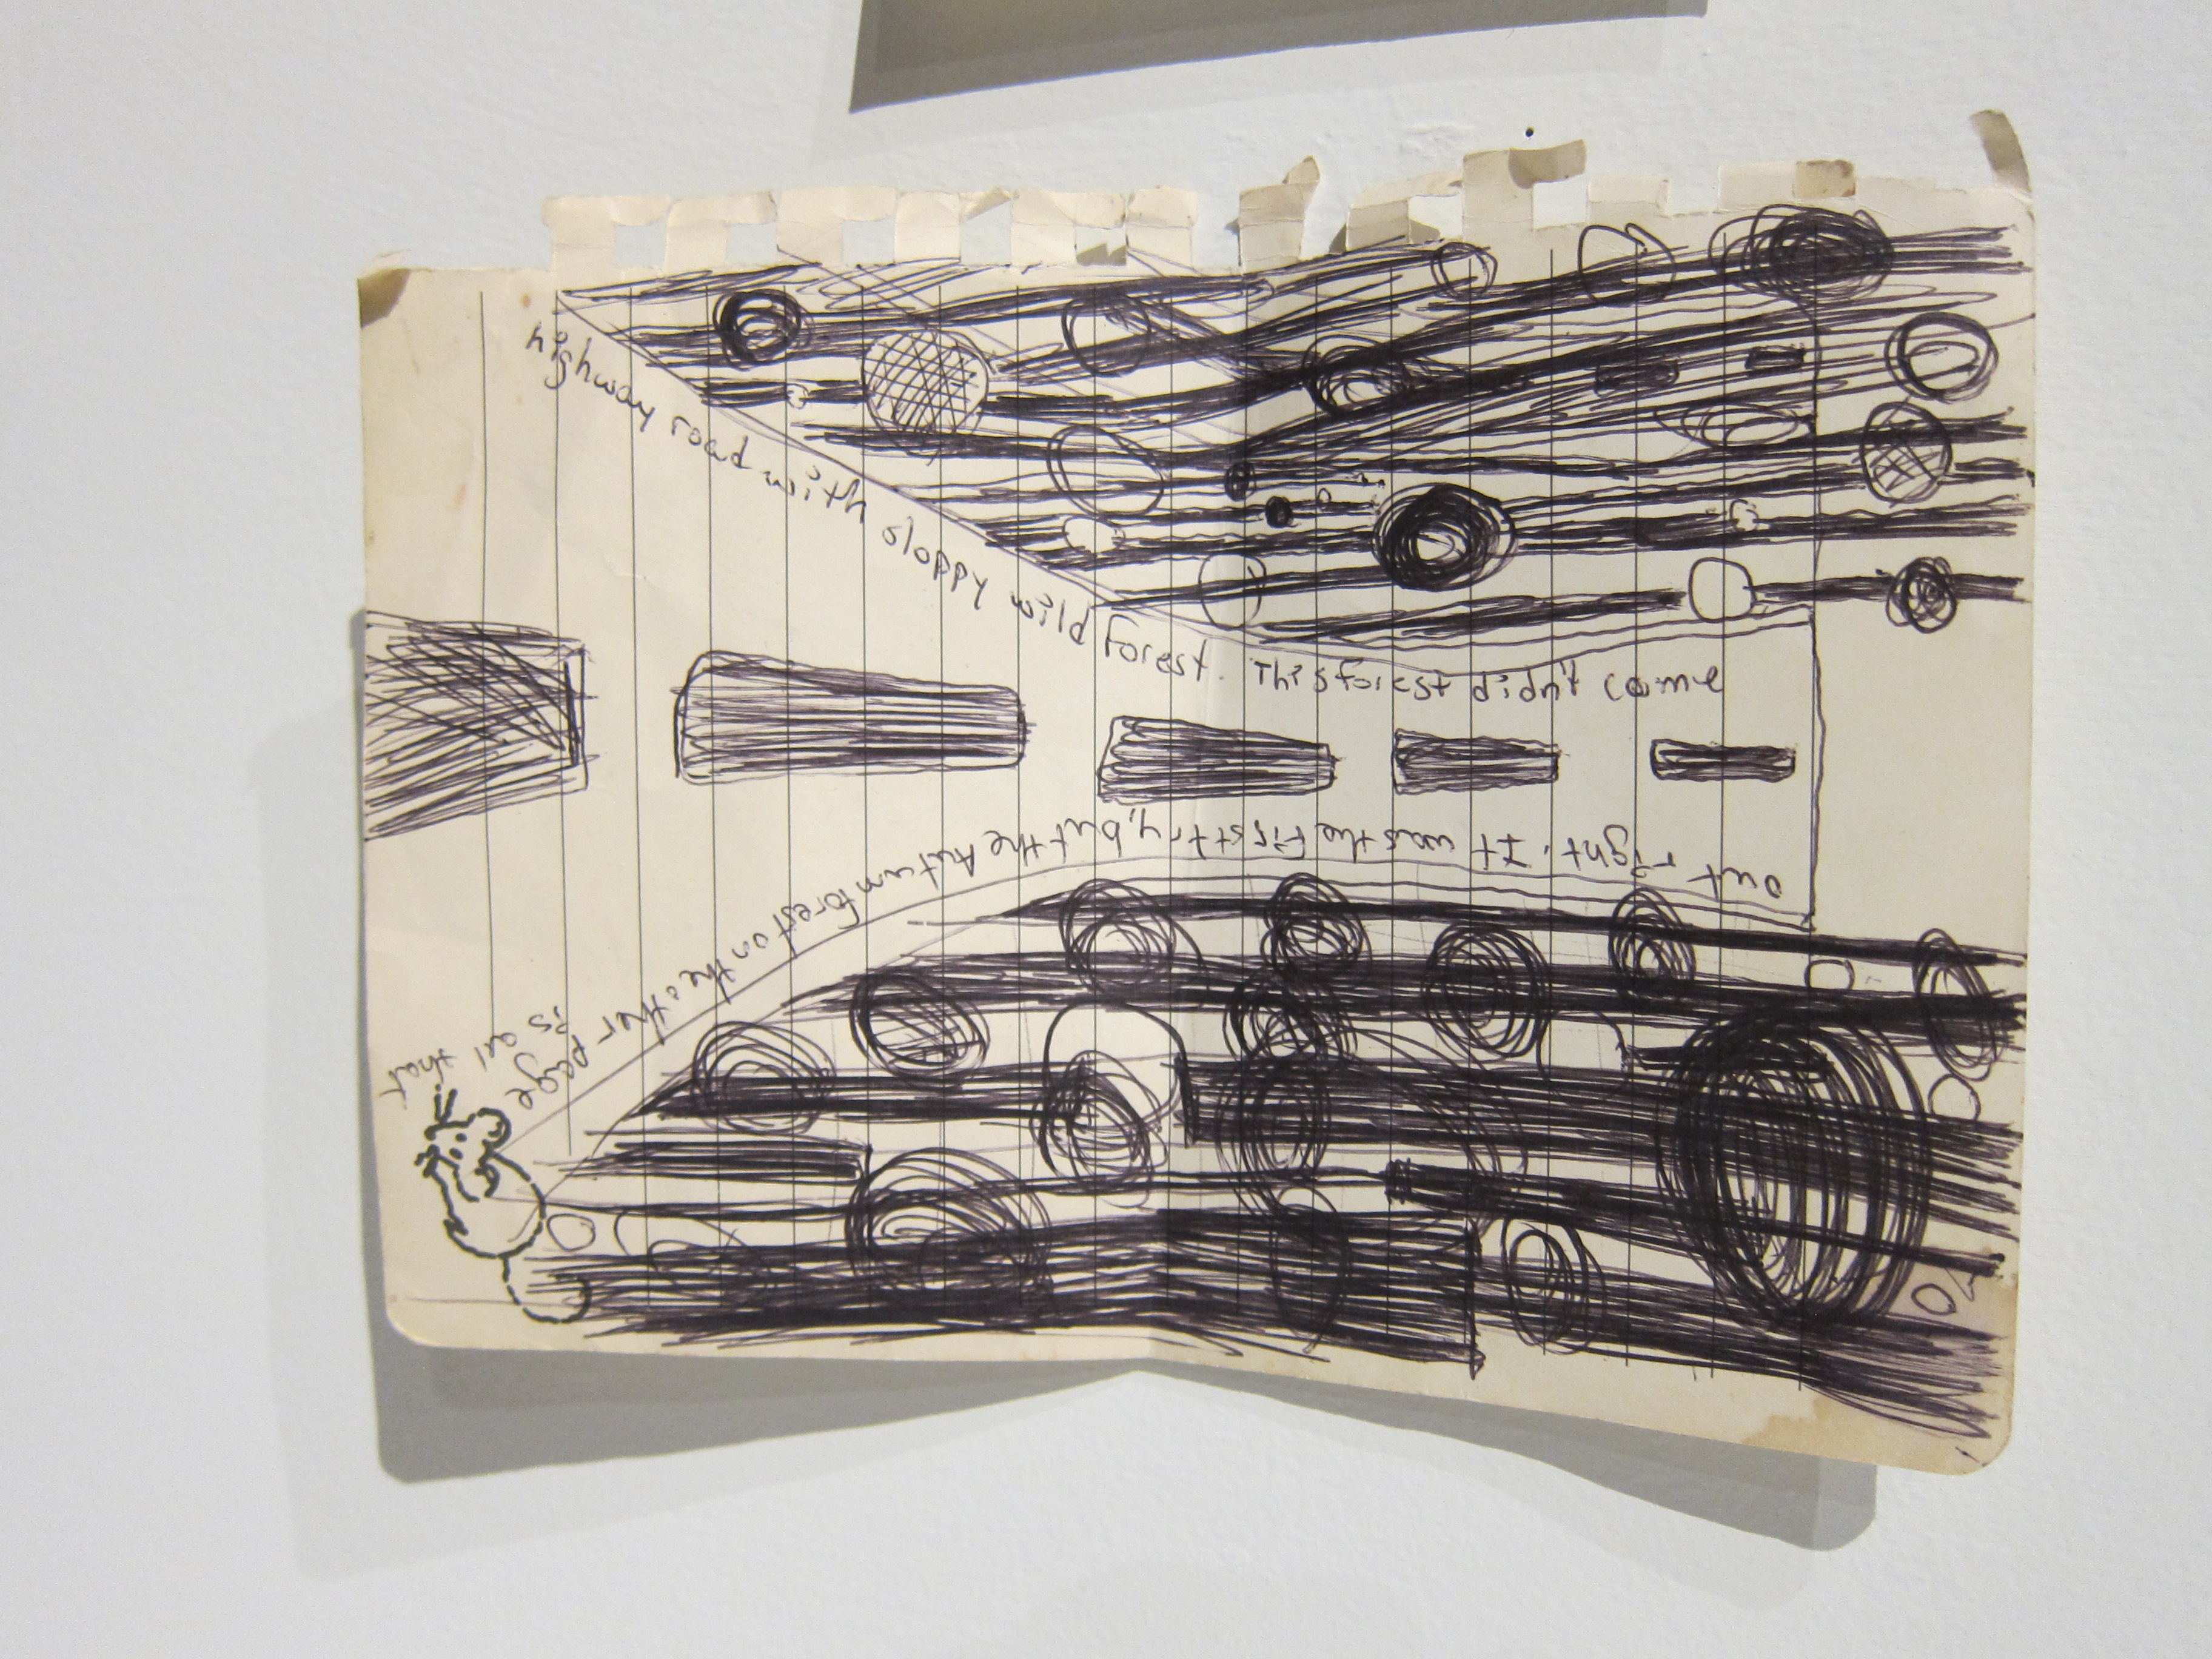 highway road with sloppy wild forest. This forest didn't come
out right. It was the first try, but the Autumn forest on the other page
is all that